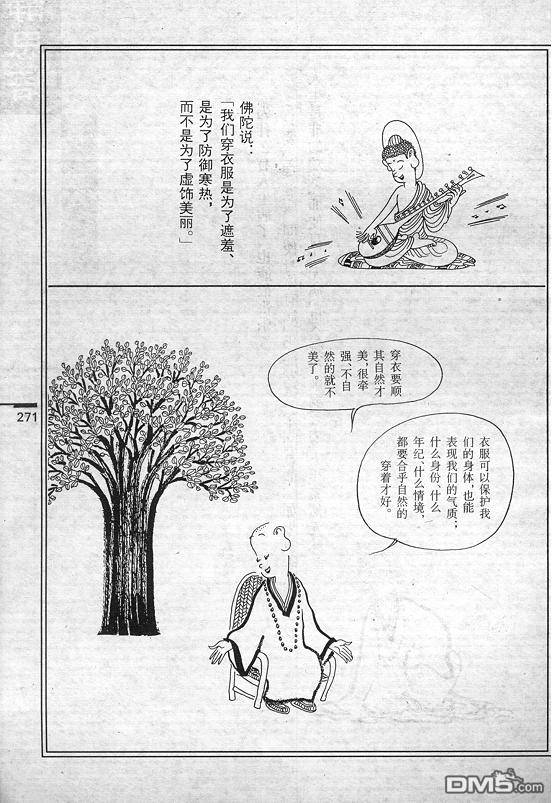 佛陀说：
「我们穿衣服是为了遮羞、
是为了防御寒热，
而不是为了虚饰美丽。」
穿衣要顺
其自然才
美，很牵
强、不自
然的就不
美了。
衣服可以保护我
们的身体，也能
表现我们的气质；
什么身份、什么
年纪、什么情境，
都要合乎自然的
穿着才好。
271
DM5.com